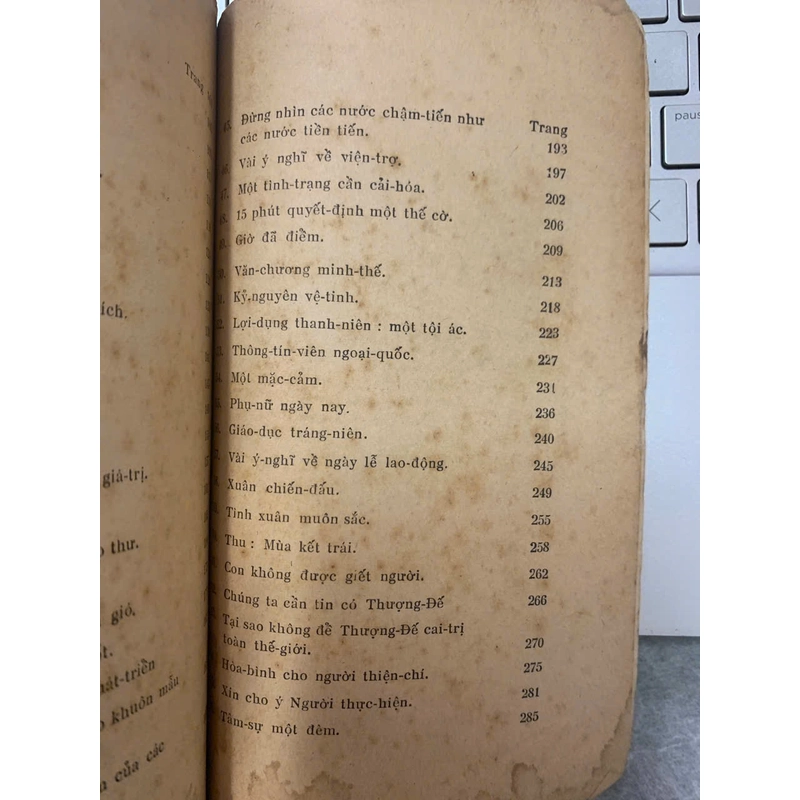 Trang
ích.
giá-trị.
thư.
gió.
khuôn mẫu
của các
Trang
Đừng nhìn các nước chậm-tiến như
các nước tiền tiến. 193
Vài ý nghĩ về viện-trợ. 197
47. Một tình-trạng cần cải-hóa. 202
15 phút quyết-định một thế cờ. 206
Giờ đã điểm. 209
Văn-chương minh-thế. 213
Kỷ-nguyên vệ-tinh. 218
Lợi-dụng thanh-niên : một tội ác. 223
Thông-tín-viên ngoại-quốc. 227
Một mặc-cảm. 231
Phụ-nữ ngày nay. 236
Giáo-dục tráng-niên. 240
Vài ý-nghĩ về ngày lễ lao-động. 245
Xuân chiến-đấu. 249
Tình xuân muôn sắc. 255
Thu : Mùa kết trái. 258
Con không được giết người. 262
Chúng ta cần tin có Thượng-Đế 266
Tại sao không để Thượng-Đế cai-trị
toàn thế-giới. 270
Hòa-bình cho người thiện-chí. 275
Xin cho ý Người thực-hiện. 281
Tâm-sự một đêm. 285
paus
K